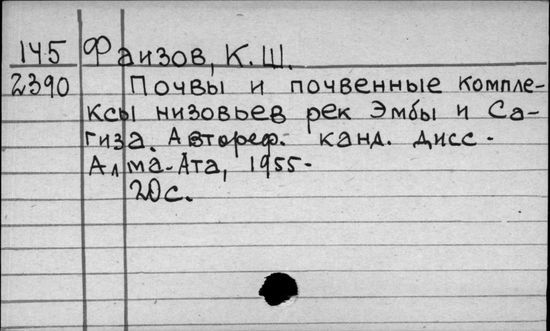 145 Фаизов, К. Ш.
2390 Почвы и почвенные компле-
ксы низовьев рек Эмбы и Са-
гиза. Автореф. канд. дисс -
Алма-Ата, 1955-
20с.